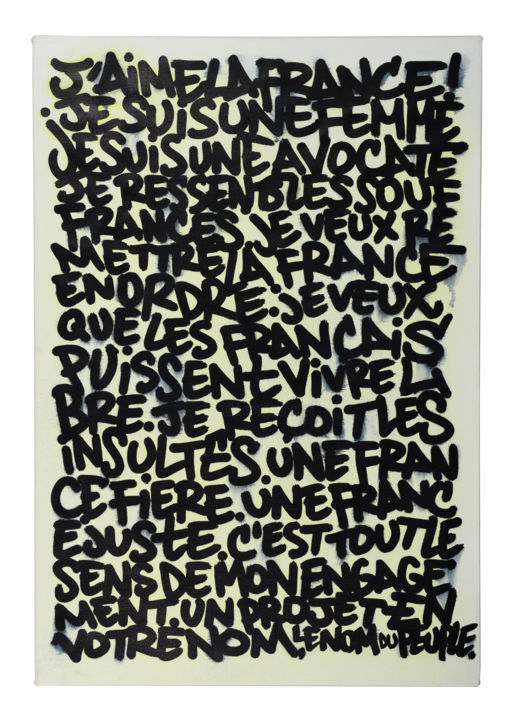 J'AiMELAFRANCE!
JESUiSUNEFEMME
JESUiSUNEAVOCATE
JE RESSENBLES SOUF
FRANCES. JE VEUX RE
METTRE LA FRANCE
EN ORDRE. JE VEUX
QUE LES FRANÇAiS
PUiSSENT ViVRE Li
BRE. JE REÇOiT LES
INSULTES. UNE FRAN
CE FiERE. UNE FRANC
E JUSTE. C'EST TOUT LE
SENS DE MON ENGAGE
MENT. UN PROJET EN
VOTRE NOM, LE NOM DU PEUPLE.